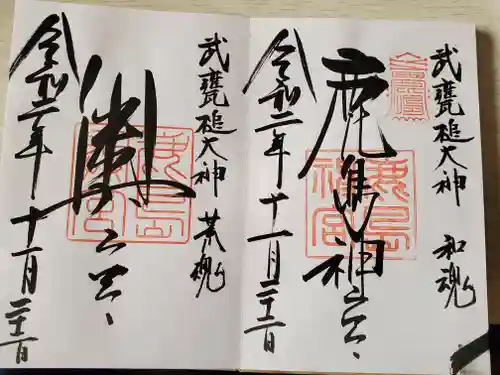 武甕槌大神 和魂
鹿島神宮
鹿島神宮
令和二年十一月二十一日
武甕槌大神 荒魂
奥宮
令和二年十一月二十一日